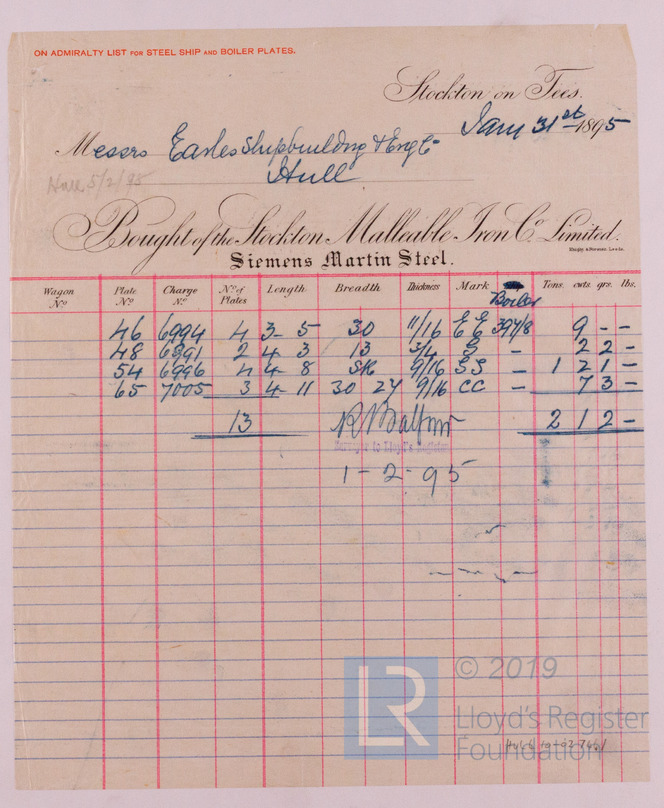 ON ADMIRALTY LIST FOR STEEL SHIP AND BOILER PLATES.
Stockton on Tees.
Jany 31st 1895
Messrs Earles Shipbuilding & Engg Co
Hull
Hull 5/2/95
Bought of the Stockton Malleable Iron Co. Limited.
Siemens Martin Steel.
Wagon No Plate No Charge No. No. of Plates Length Breadth Thickness Mark Tons. cwts. qrs. lbs.
Boiler
46 6994 4 3- 5 30 11/16 EE 397/8 9 - -
48 6991 2 4 3 13 3/4 - 2 2 -
54 6996 4 4- 8 SK 9/16 - 1 2 1 -
65 7005 3 4- 11 30 24 9/16 CC - 7 3 -
13 2 1 2 -
R Balfour
Surveyor to Lloyd's Register
1-2-95
© 2019
LR
Lloyd's Register
Foundation